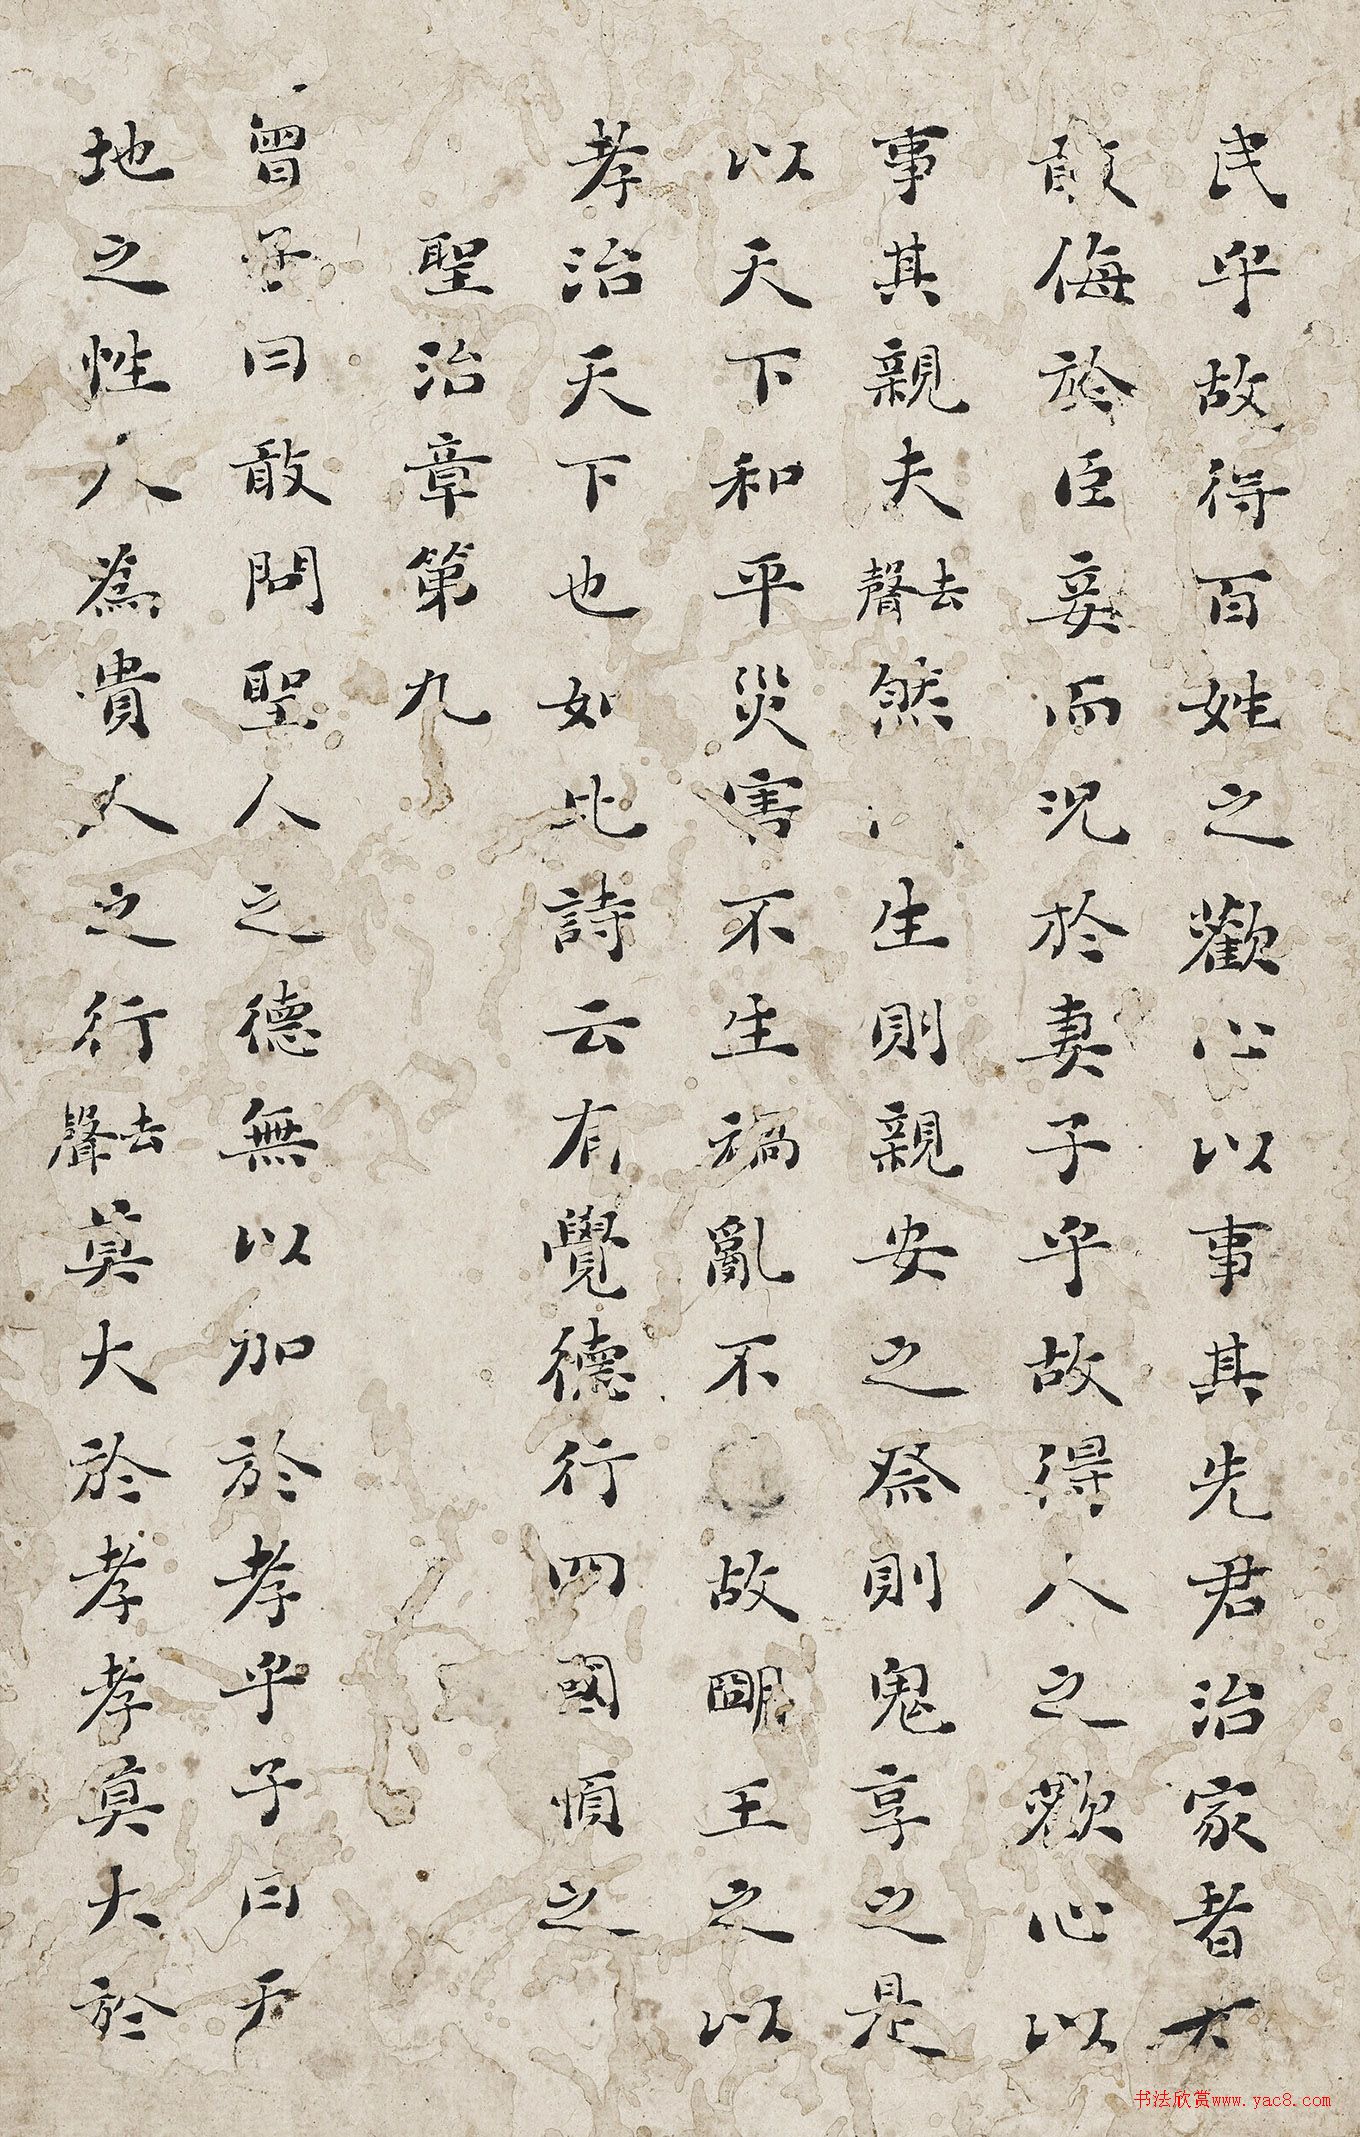 民乎故得百姓之歡心以事其先君治家者不
敢侮於臣妾而況於妻子乎故得人之歡心以
事其親夫去聲然生則親安之祭則鬼享之是
以天下和平災害不生禍亂不故朙王之以
孝治天下也如此詩云有覺德行四國順之
聖治章第九
曾子曰敢問聖人之德無以加於孝乎子曰天
地之性人為貴人之行去聲莫大於孝孝莫大於
书法欣赏www.yac8.com